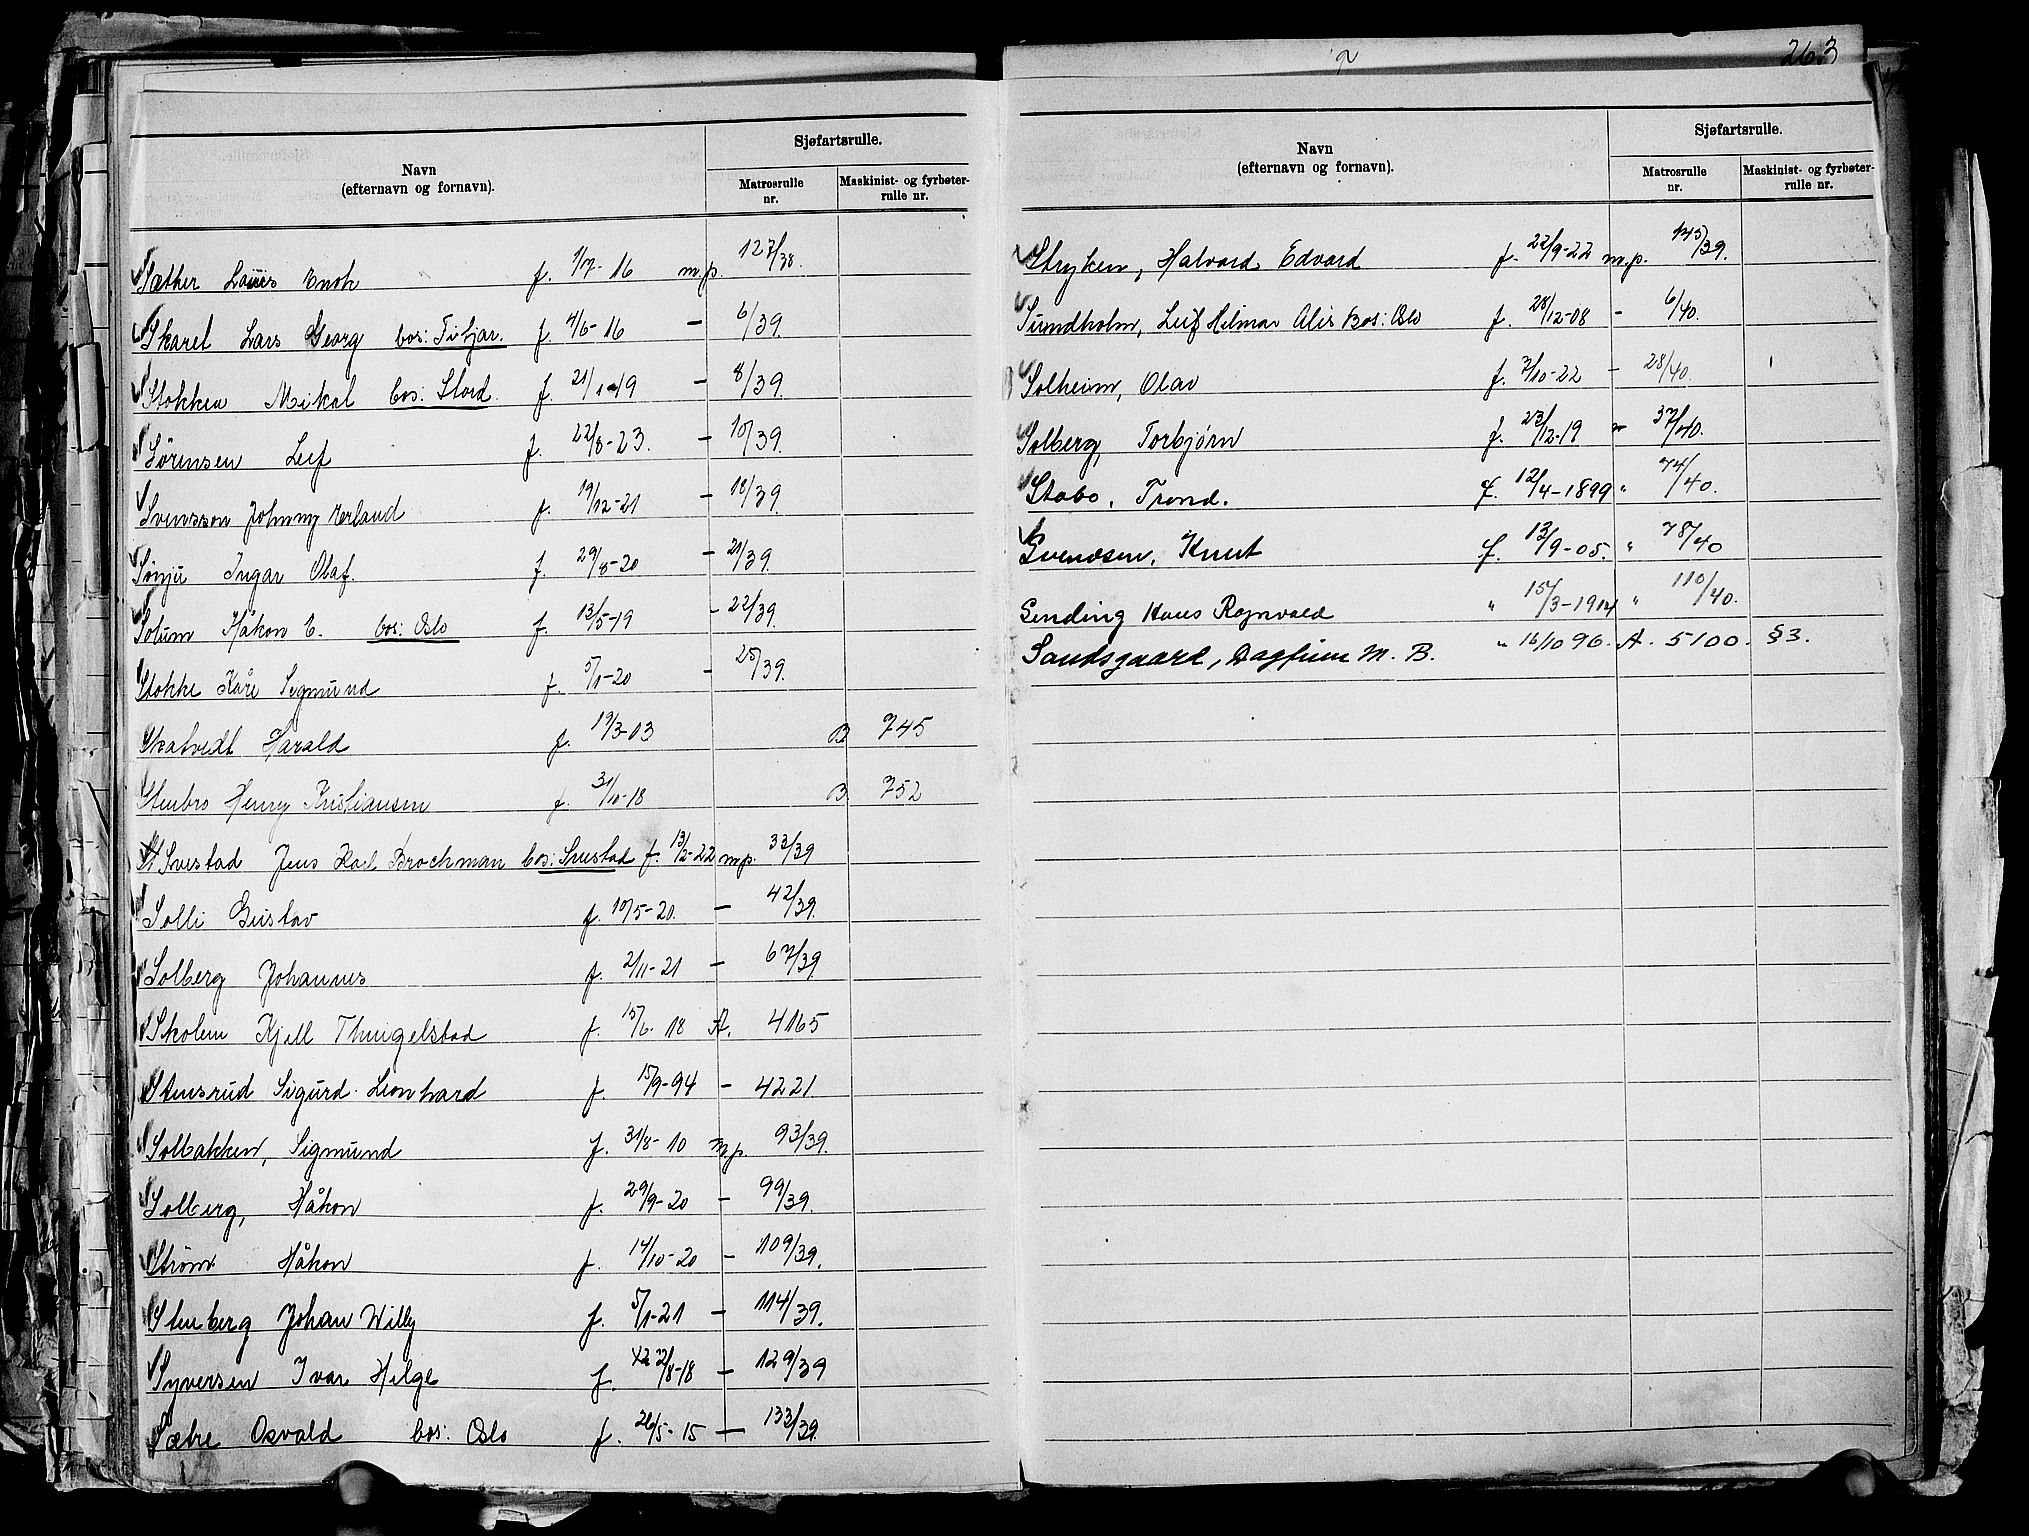 Navn
(efternavn og fornavn).
Sjøfartsrulle.
Matrosrulle nr.
Maskinist- og fyrbøter-rulle nr.
Sæther Louis Enok f. 1/7-16 m.p. 127/38.
Skarel Lars Georg bos: Fitjar. f. 4/6-16 - 6/39.
Stokken Mikal bos: Stord. f. 21/1-19 - 8/39.
Sørensen Leif f. 22/8-23. - 10/39.
Svensson Johnny Erland f. 19/12-21 - 18/39.
Sønju Ingar Olaf. f. 29/8-20 - 21/39.
Solum Håkon E. bos: Oslo f. 13/5-19 - 22/39.
Stokke Kåre Sigmund f. 5/1-20 - 25/39.
Skatvedt Harald f. 19/3-03 B 745
Stenbro Henry Kristiansen f. 31/10-18 B 752
Svestad Jens Karl Brochman bos: Svestad f. 13/2-22 m.p. 33/39
Solli Gustav f. 10/5-20. - 42/39.
Solberg Johannes f. 2/11-21 - 67/39
Skolem Kjell f. 15/6-18 A. 4165
Stensrud Sigurd Leonhard f. 15/9-94 - 4221
Solbakken, Sigmund f. 31/8-10 m.p. 93/39.
Solberg, Håkon f. 29/9-20 - 99/39.
Strøm Håkon f. 14/10-20 - 109/39.
Stenberg Johan Willy f. 5/1-21 - 114/39.
Syversen Ivar Helge f. 22/8-18 - 129/39
Sæbre Osvald bos: Oslo f. 26/5-15 - 133/39.
263
Navn
(efternavn og fornavn).
Sjøfartsrulle.
Matrosrulle nr.
Maskinist- og fyrbøter-rulle nr.
Stryken, Halvard Edvard f. 22/9-22 m.p. 145/39.
Sundholm, Leif Hilmar Alis Bos: Oslo f. 28/12-08 - 6/40.
Solheim, Olav f. 7/10-22 - 28/40.
Solberg, Torbjørn f. 23/12-19 - 37/40.
Stabo, Trond. f. 12/4-1899 " 74/40.
Svendsen, Knut f. 13/9-05. " 78/40
Sending Hans Ragnvald " 15/3-1914 " 110/40.
Sandsgaard, Dagfinn M. B. " 16/10 96. A. 5100. §3.